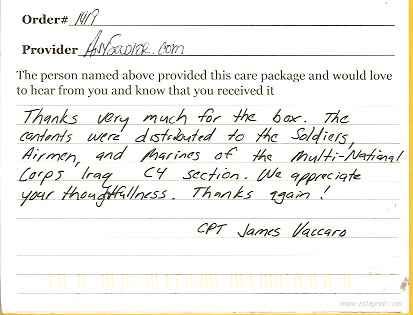 Order# 1419
Provider AnySoldier.com
The person named above provided this care package and would love
to hear from you and know that you received it
Thanks very much for the box. The
contents were distributed to the Soldiers,
Airmen, and Marines of the Multi-National
Corps Iraq C4 section. We appreciate
your thoughtfullness. Thanks again!
CPT James Vaccaro
www.vistaprint.com